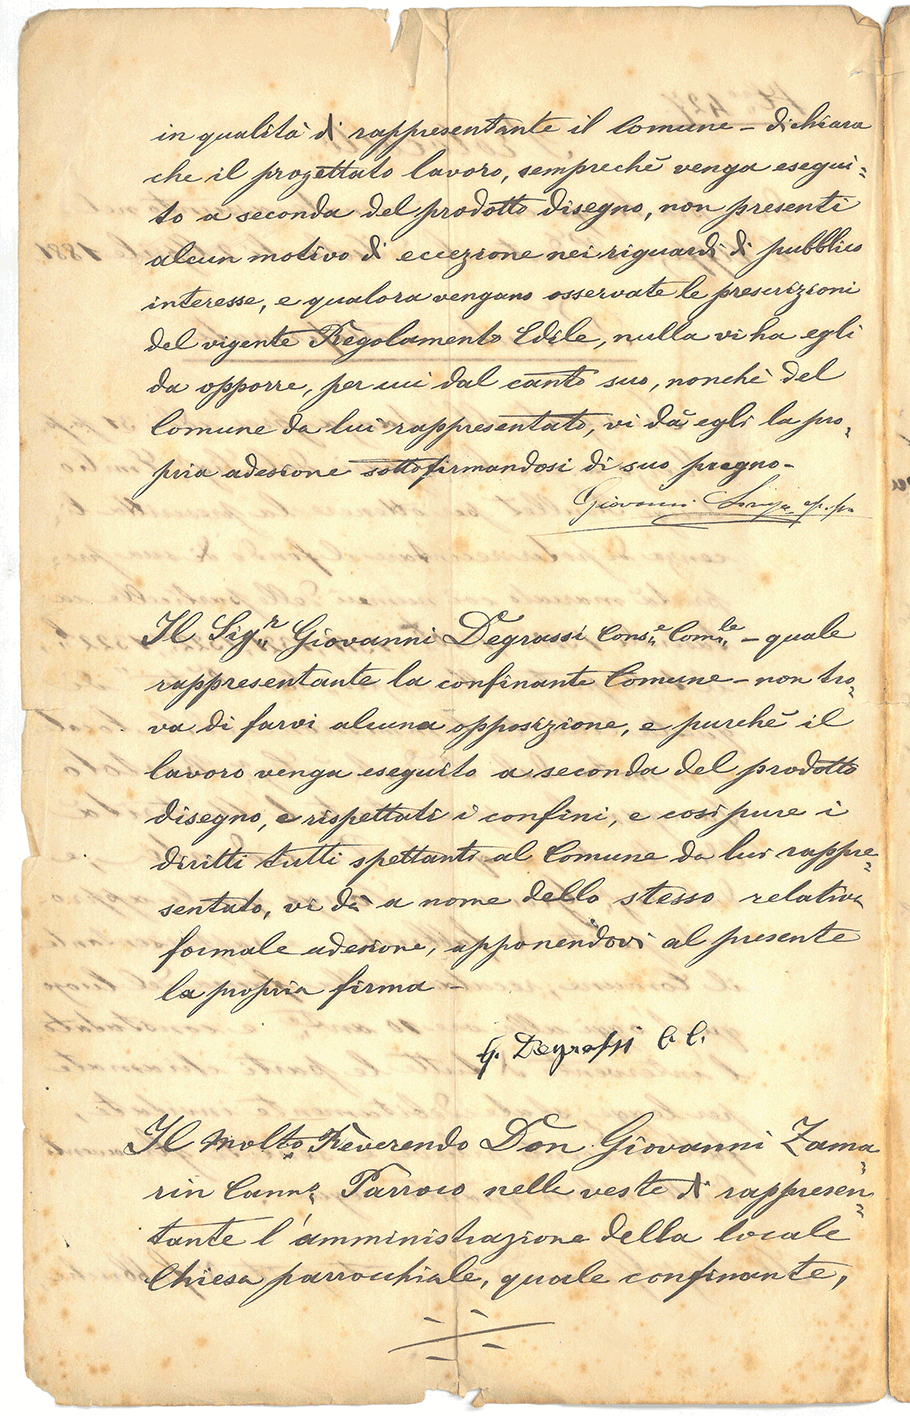 in qualità di rappresentante il Comune – dichiara
che il progettato lavoro, semprechè venga esegui=
to a seconda del prodotto disegno, non presenti
alcun motivo di eccezione nei riguardi di pubblico
interesse, e qualora vengano osservate le prescrizioni
del vigente Regolamento Edile, nulla vi ha egli
da opporre, per cui dal canto suo, nonchè del
Comune da lui rappresentato, vi dà egli la pro=
pria adesione sottofirmandosi di suo pregno –
Giovanni
Il Sig.r Giovanni Degrassi Cons.e Com.le – quale
rappresentante la confinante Comune – non tro=
va di farvi alcuna opposizione, e purchè il
lavoro venga eseguito a seconda del prodotto
disegno, e rispettati i confini, e così pure i
diritti tutti spettanti al Comune da lui rappre=
sentato, vi dà a nome dello stesso relativa
formale adesione, apponendovi al presente
la propria firma –
G. Degrassi C. C.
Il Molto Reverendo Don Giovanni Zama=
rin Cann.o Parroco nelle veste di rappresen=
tante l'amministrazione della locale
Chiesa parrocchiale, quale confinante,